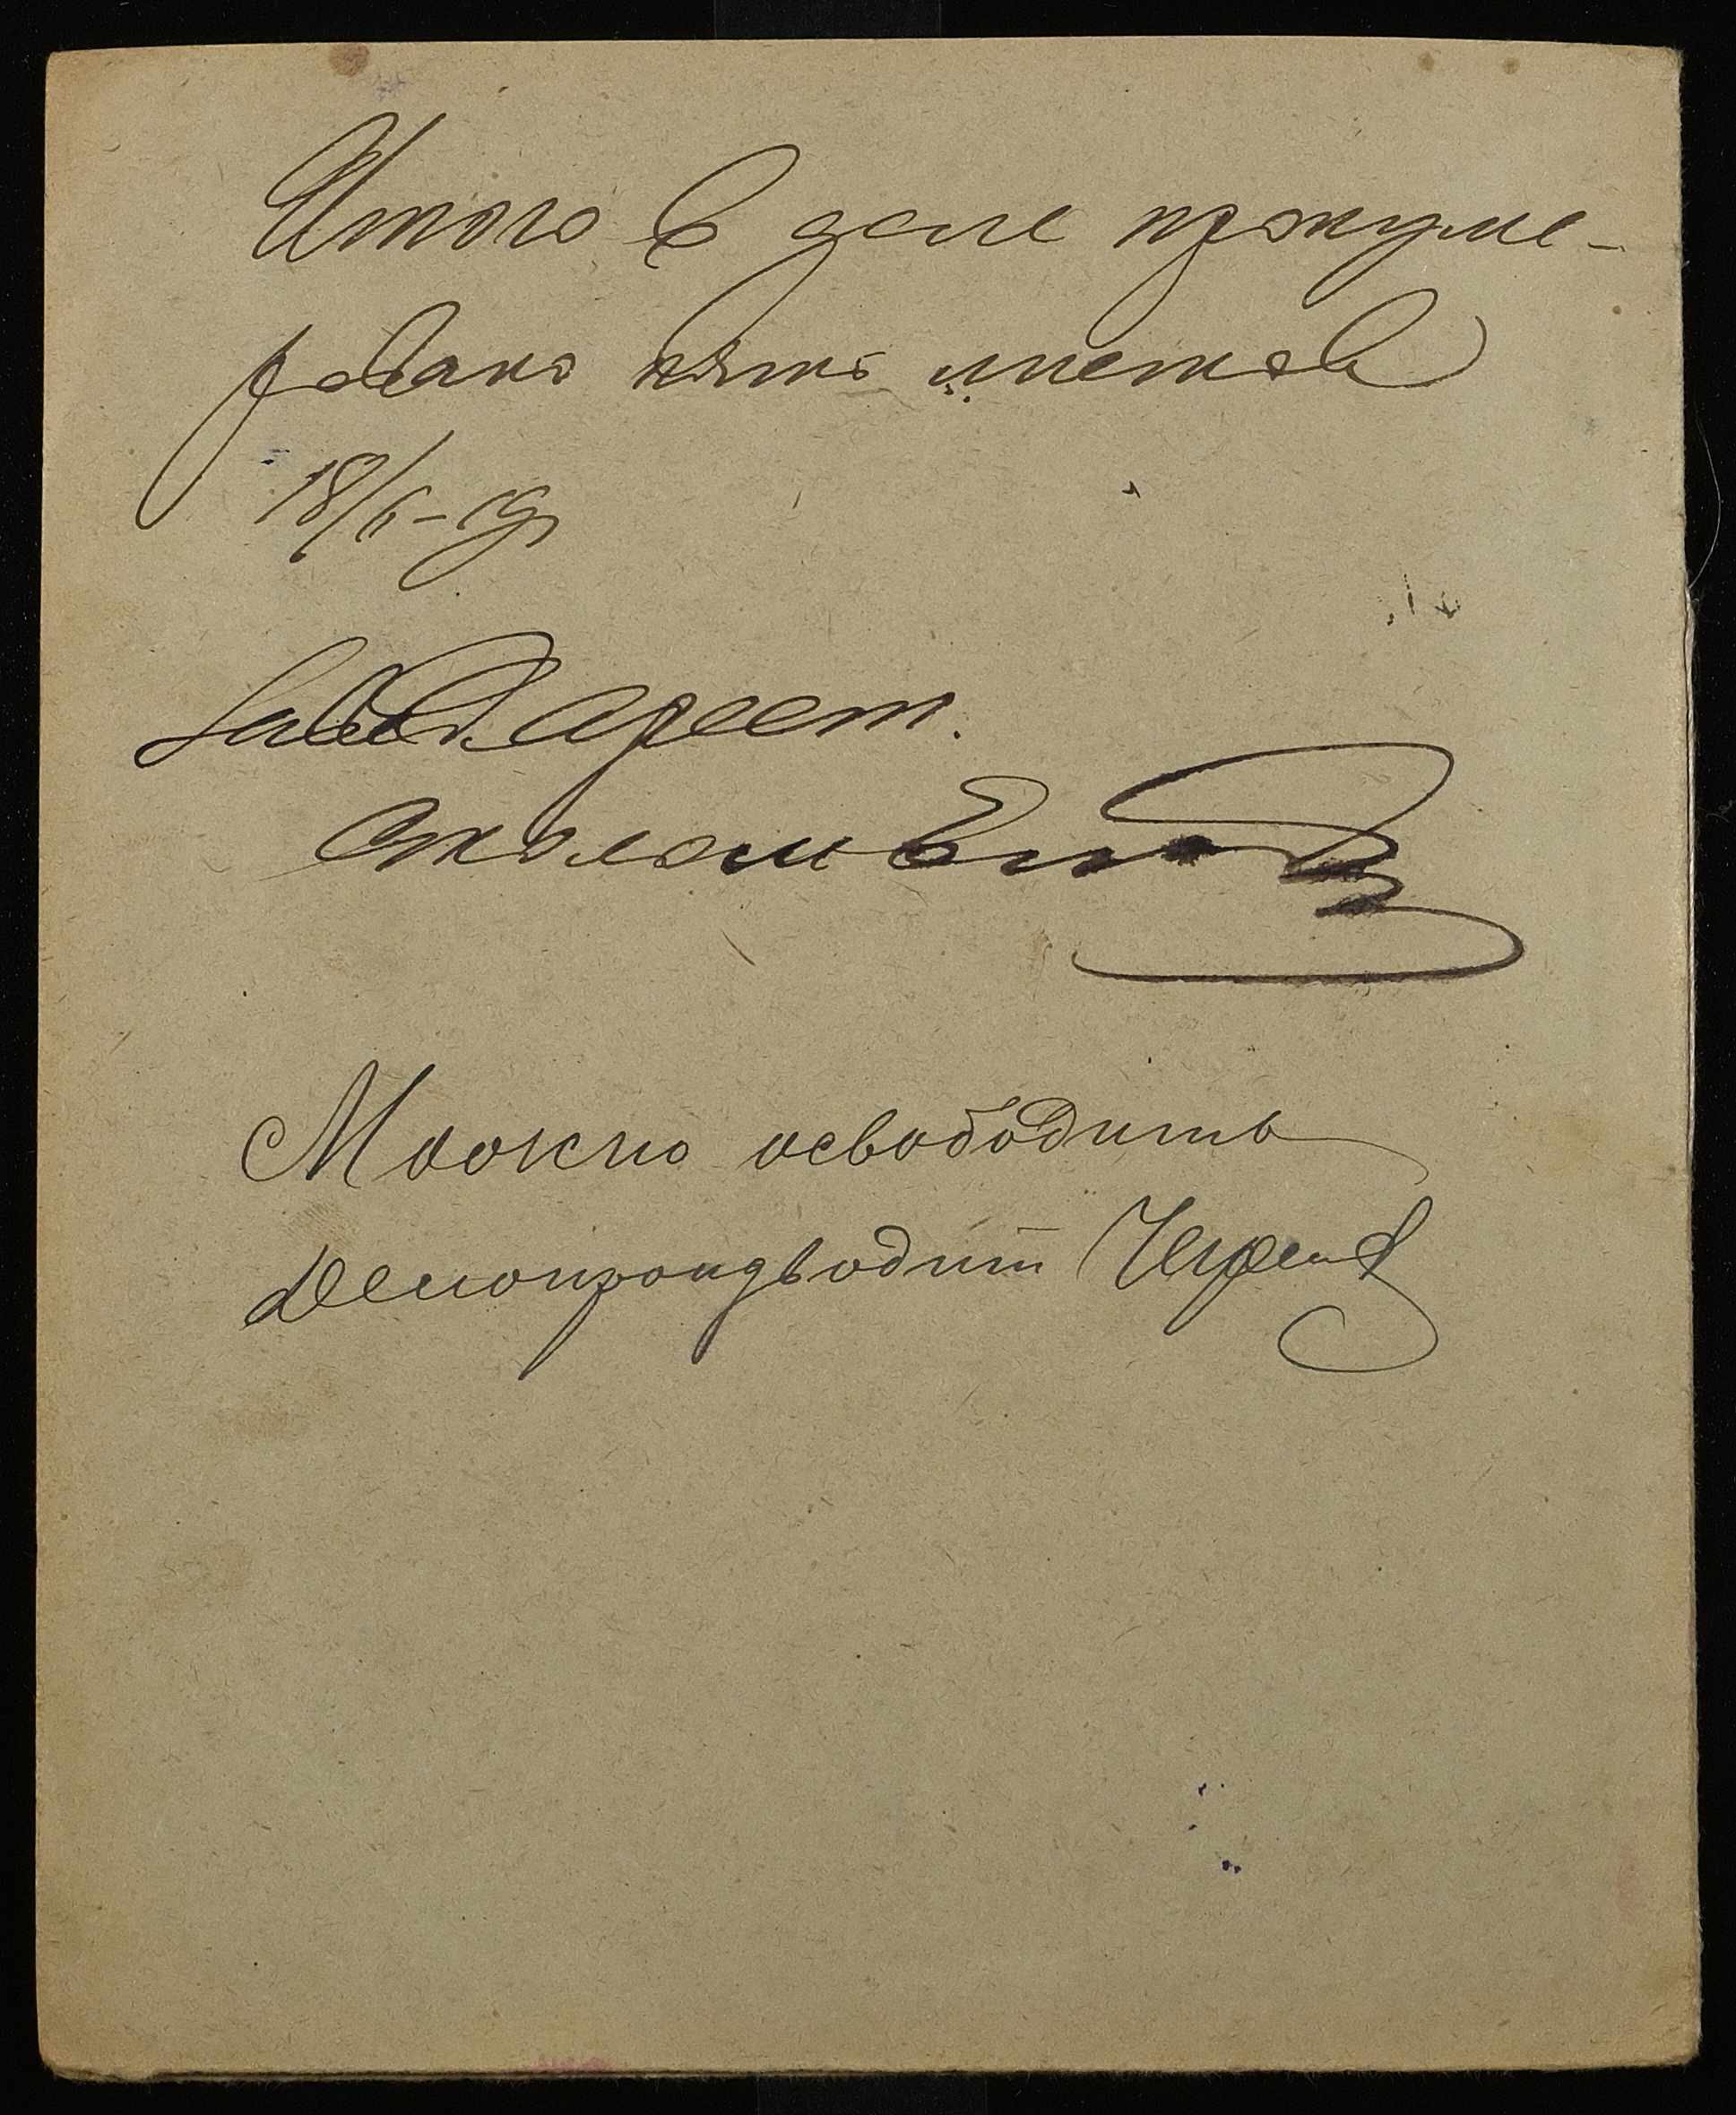 Итого в деле пронуме-
ровано пять листов
18/6-19г
Завед. Арест.
столом
Можно освободить
Делопроизводит